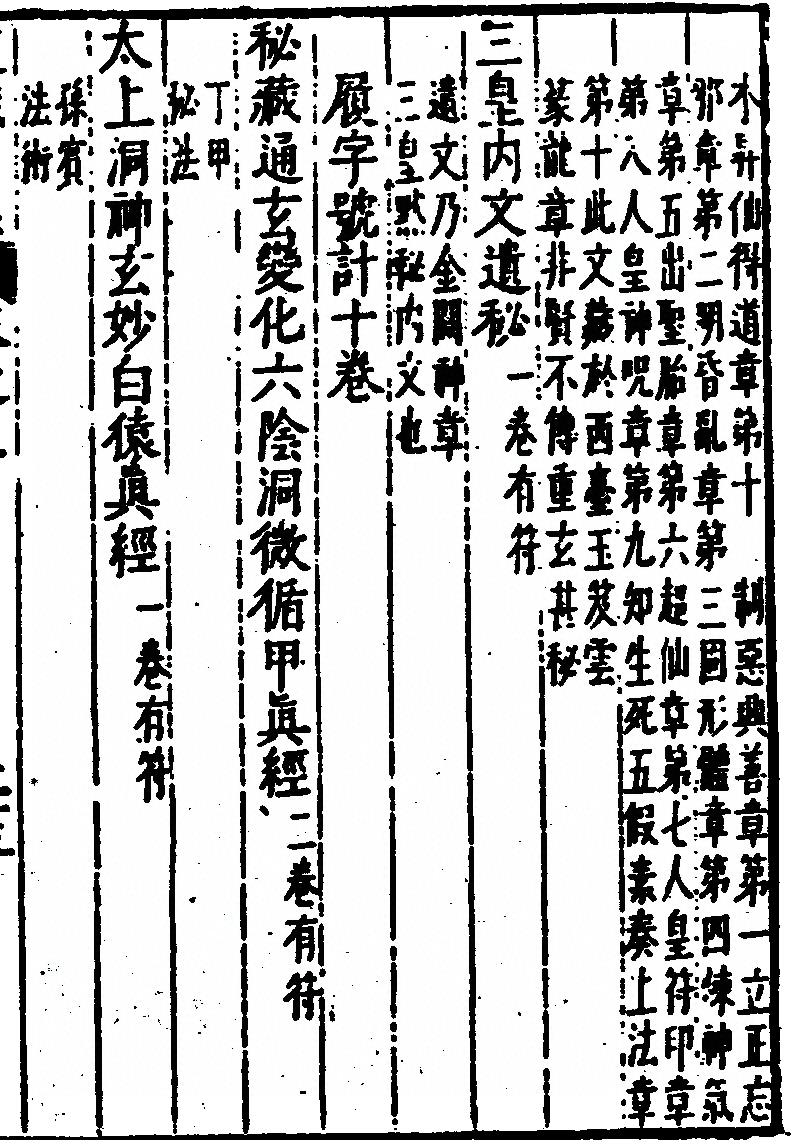 水昇仙得道章第十 制惡興善章第一立正忘
邪章第二明昏亂章第三固形體章第四煉神氣
章第五出聖胎章第六超仙章第七人皇符印章
第八人皇神呪章第九知生死五假素奏上法章
第十此文藏於西臺玉笈雲
篆龍章非賢不傳重玄甚秘
三皇内文遺秘一卷有符
遺文乃金闕神章
三皇默秘内文也
履字號計十卷
秘藏通玄變化六陰洞微循甲眞經二卷有符
丁甲
秘法
太上洞神玄妙白猿眞經一卷有符
孫賓
法術